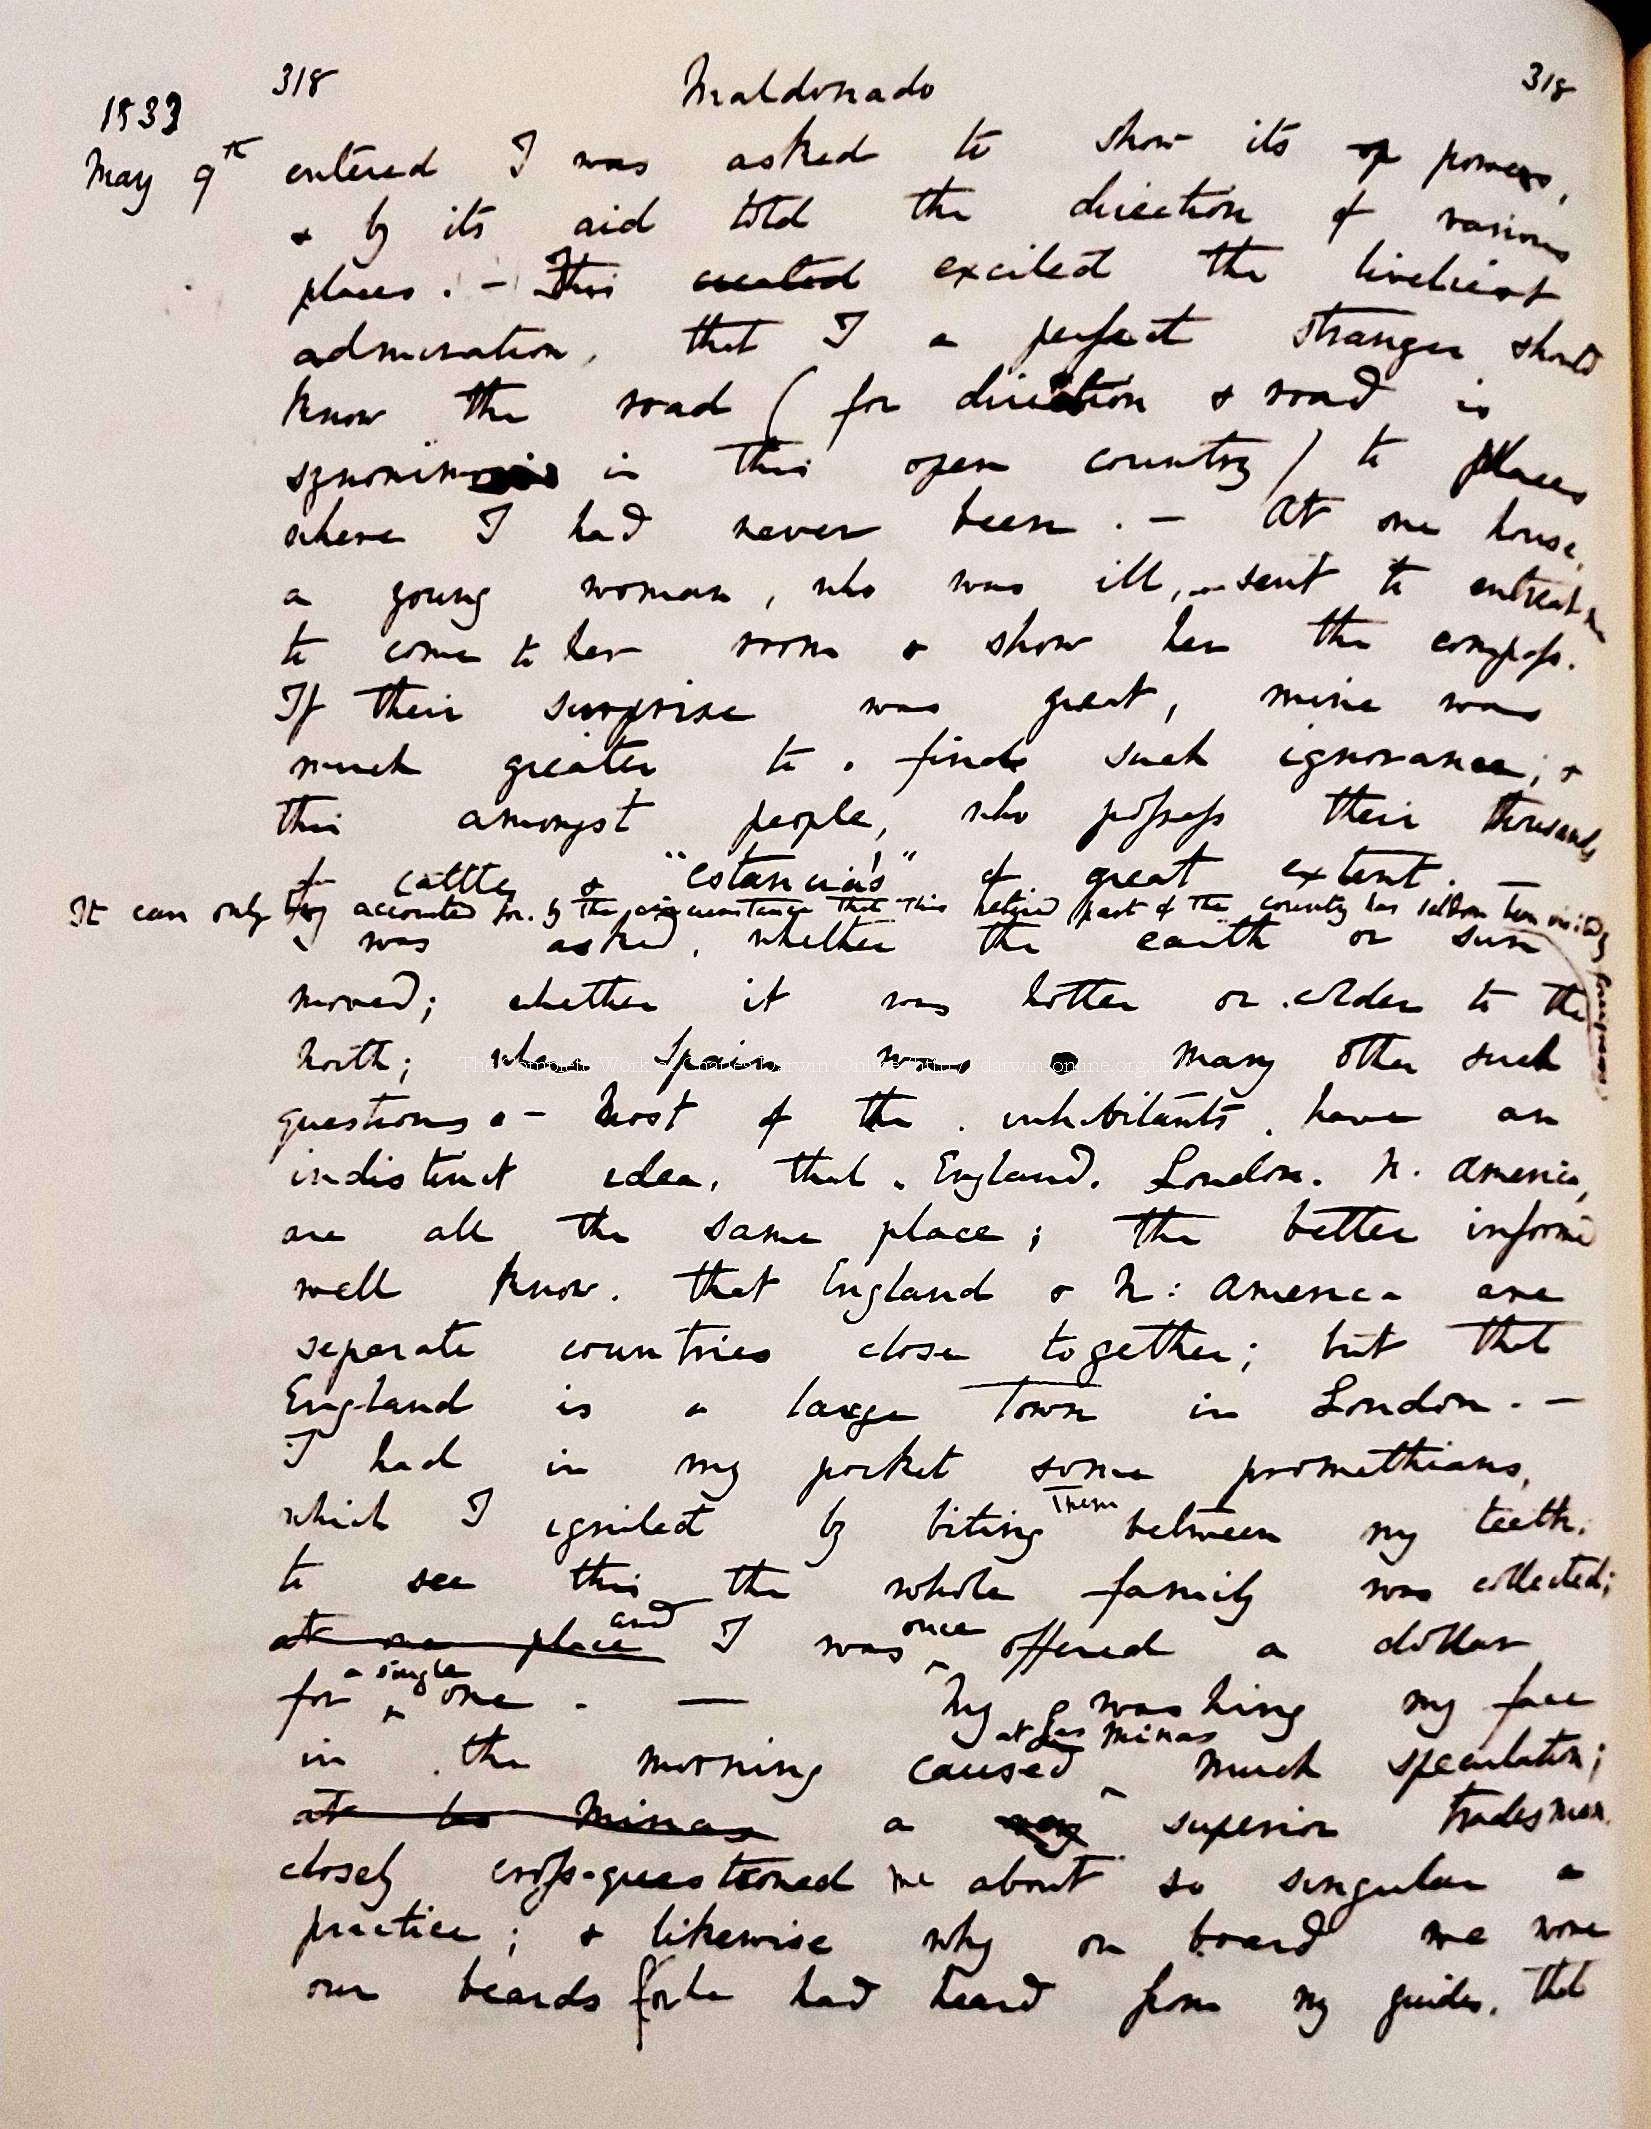 318 Maldonado 318
1833
May 9th entered I was asked to show its op powers,
& by its aid told the direction of various
places. — This created excited the liveliest
admiration, that I a perfect stranger should
know the road ( for direction & road is
in this open country ) to places
where I had never been. — At one house,
a young woman, who was ill, sent to entreat me
to come to her room & show her the compass.
If their surprise was great, mine was
much greater to find such ignorance; &
this amongst people, who possess their thousands
of cattle & "estancia's" of great extent. —
It can only be accounted for by the circumstance that this retired part of the country has seldom been visited by foreigners.
I was asked, whether the earth or sun
moved; whether it was hotter or colder to the
North; where Spain was & many other such
questions. — Most of the inhabitants have an
indistinct idea, that England, London, N. America,
are all the same place; the better informed
well know, that England & N: America are
separate countries close together; but that
England is a large town in London. —
I had in my pocket some promethians,
which I ignited by biting them between my teeth.
to see this the whole family was collected;
at one place and I was once offered a dollar
for a single one. — My washing my face
in the morning caused at Las Minas much speculation;
at las Minas a very superior tradesman
closely cross-questioned me about so singular a
practice; & likewise why on board we wore
our beards for he had heard from my guides, that
The Complete Work of Charles Darwin Online darwin-online.org.uk